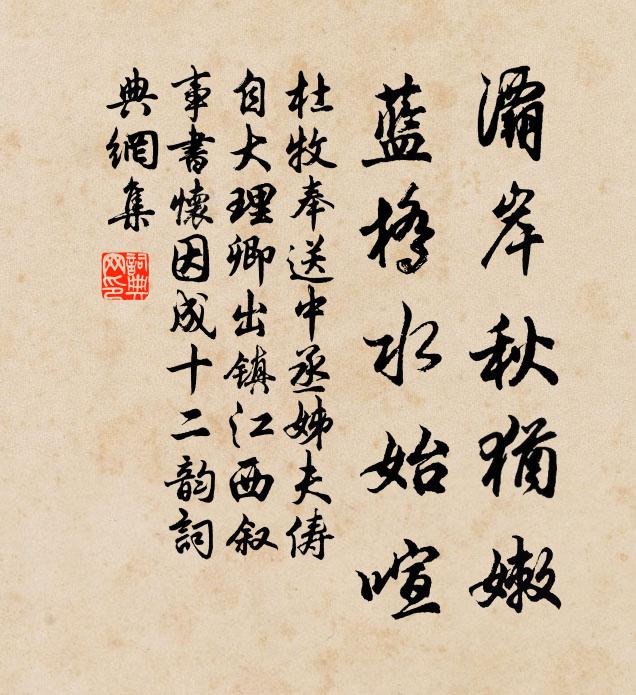 灞岸秋猶嫩
藍橋水始喧
杜牧奉送中丞姊夫儔
自大理卿出鎮江西叙
事書懷因成十二韵詞
典網集
詞典
网印